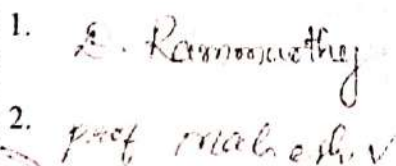 1. D. Rammurthy
2. prof mahesh. v